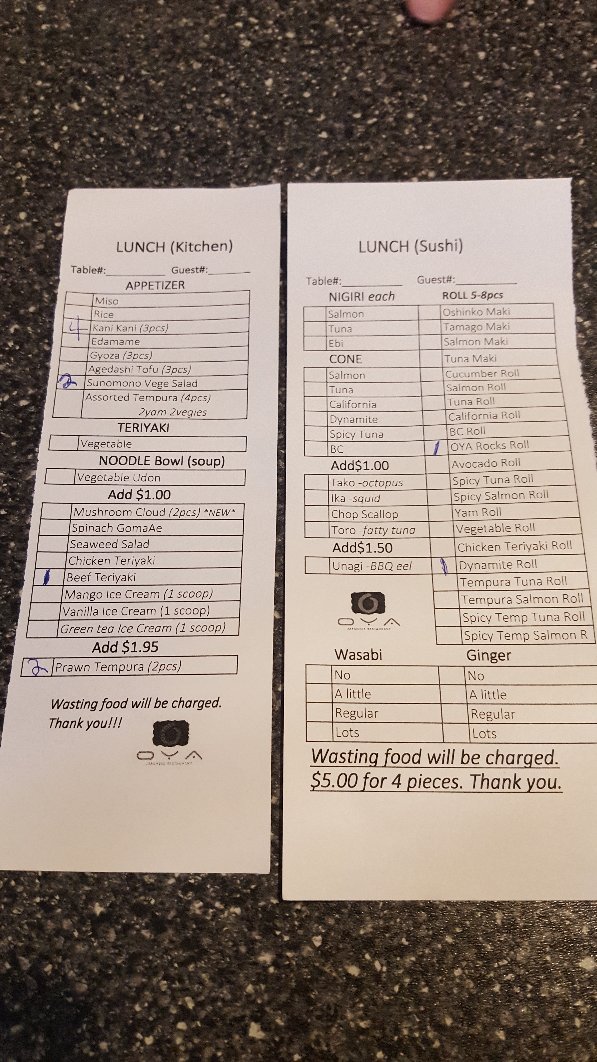 LUNCH (Kitchen)
Table#:________ Guest#:______
APPETIZER
Miso
Rice
4 Kani Kani (3pcs)
Edamame
Gyoza (3pcs)
Agedashi Tofu (3pcs)
2 Sunomono Vege Salad
Assorted Tempura (4pcs)
2yam 2vegies
TERIYAKI
Vegetable
NOODLE Bowl (soup)
Vegetable Udon
Add $1.00
Mushroom Cloud (2pcs) *NEW*
Spinach GomaAe
Seaweed Salad
Chicken Teriyaki
1 Beef Teriyaki
Mango Ice Cream (1 scoop)
Vanilla Ice Cream (1 scoop)
Green tea Ice Cream (1 scoop)
Add $1.95
2 Prawn Tempura (2pcs)
Wasting food will be charged.
Thank you!!!
OYA
LUNCH (Sushi)
Table#:________ Guest#:________
NIGIRI each
Salmon
Tuna
Ebi
CONE
Salmon
Tuna
California
Dynamite
Spicy Tuna
BC
Add$1.00
Tako -octopus
Ika -squid
Chop Scallop
Toro -fatty tuna
Add$1.50
Unagi -BBQ eel
OYA
ROLL 5-8pcs
Oshinko Maki
Tamago Maki
Salmon Maki
Tuna Maki
Cucumber Roll
Salmon Roll
Tuna Roll
California Roll
BC Roll
1 OYA Rocks Roll
Avocado Roll
Spicy Tuna Roll
Spicy Salmon Roll
Yam Roll
Vegetable Roll
Chicken Teriyaki Roll
1 Dynamite Roll
Tempura Tuna Roll
Tempura Salmon Roll
Spicy Temp Tuna Roll
Spicy Temp Salmon R
Wasabi
No
A little
Regular
Lots
Ginger
No
A little
Regular
Lots
Wasting food will be charged.
$5.00 for 4 pieces. Thank you.